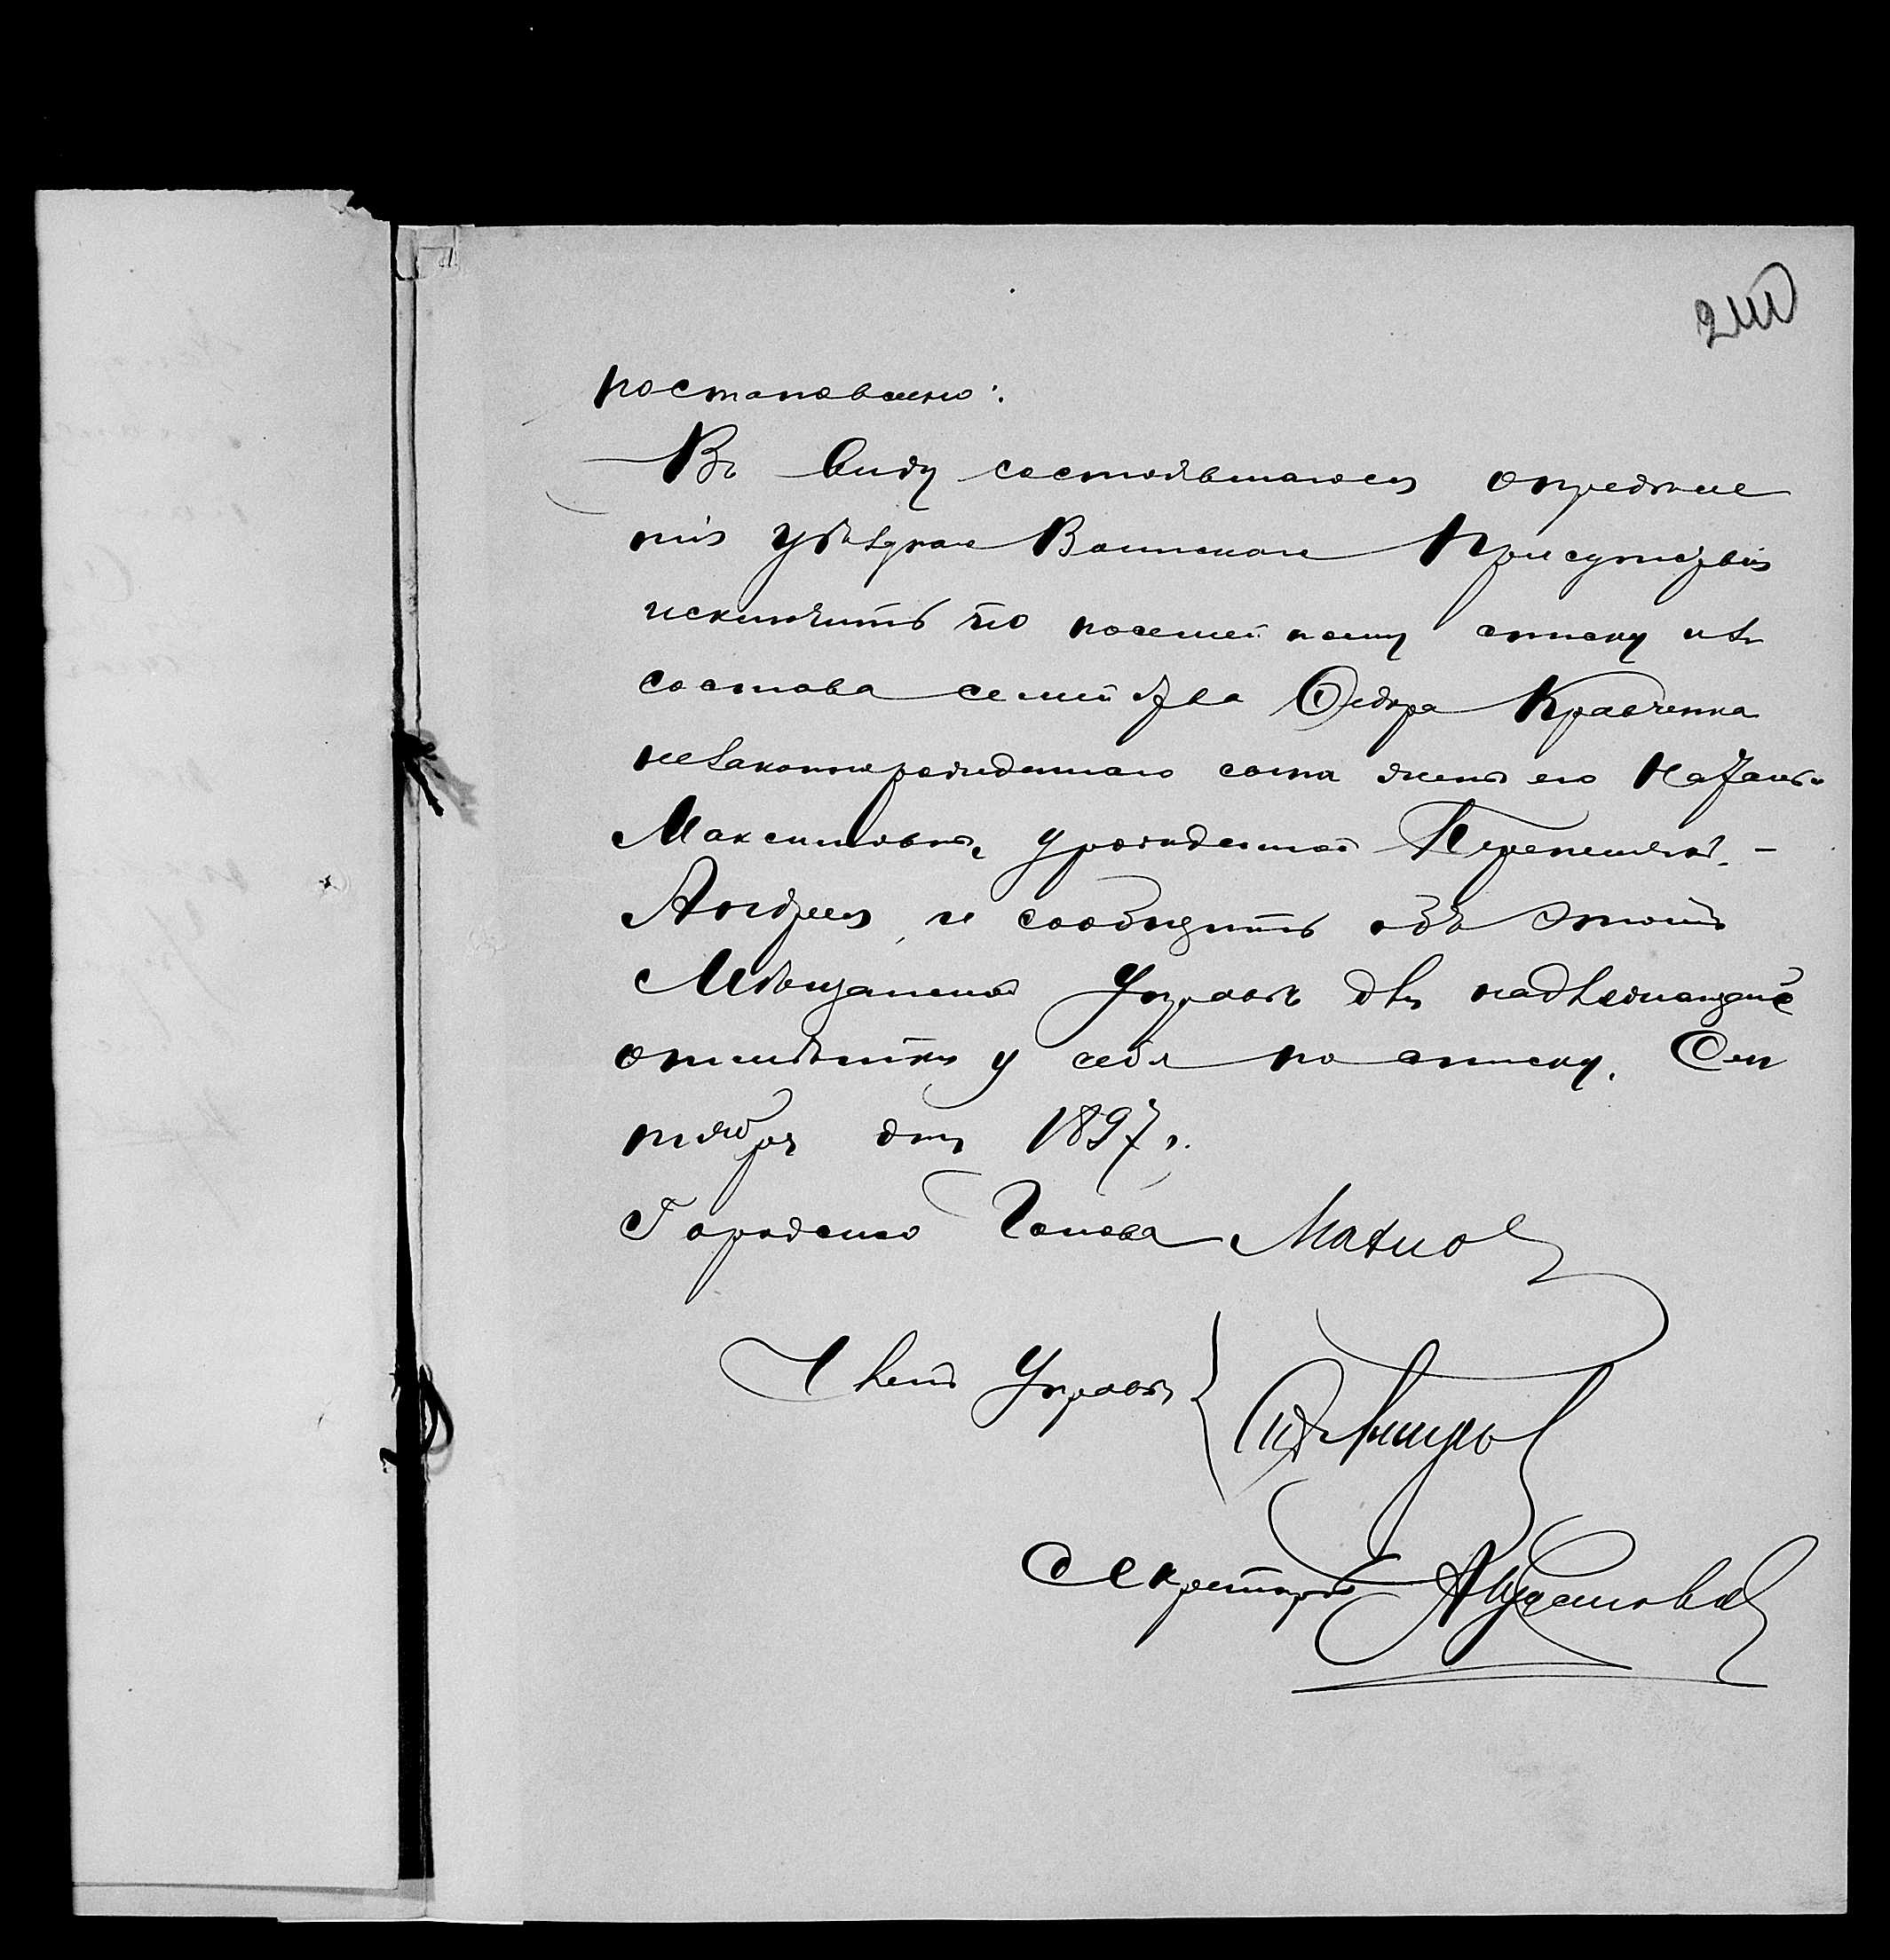 постановлено:
Въ виду состоявшагося опредѣле
нія уѣзднаго Воинскаго Присутствія
исключить по посемейному списку изъ
состава семейства Ѳедора Кравченка
незаконнорожденнаго сына жены его Наталь
Максимовны, урожденной
Андрея, и сообщить объ этомъ
Мѣщанской Управѣ для надлежащей
отмѣтки у себя по списку. Сен
тября дня 1897 г.
Городской Голова
Члены Управы
Секретарь